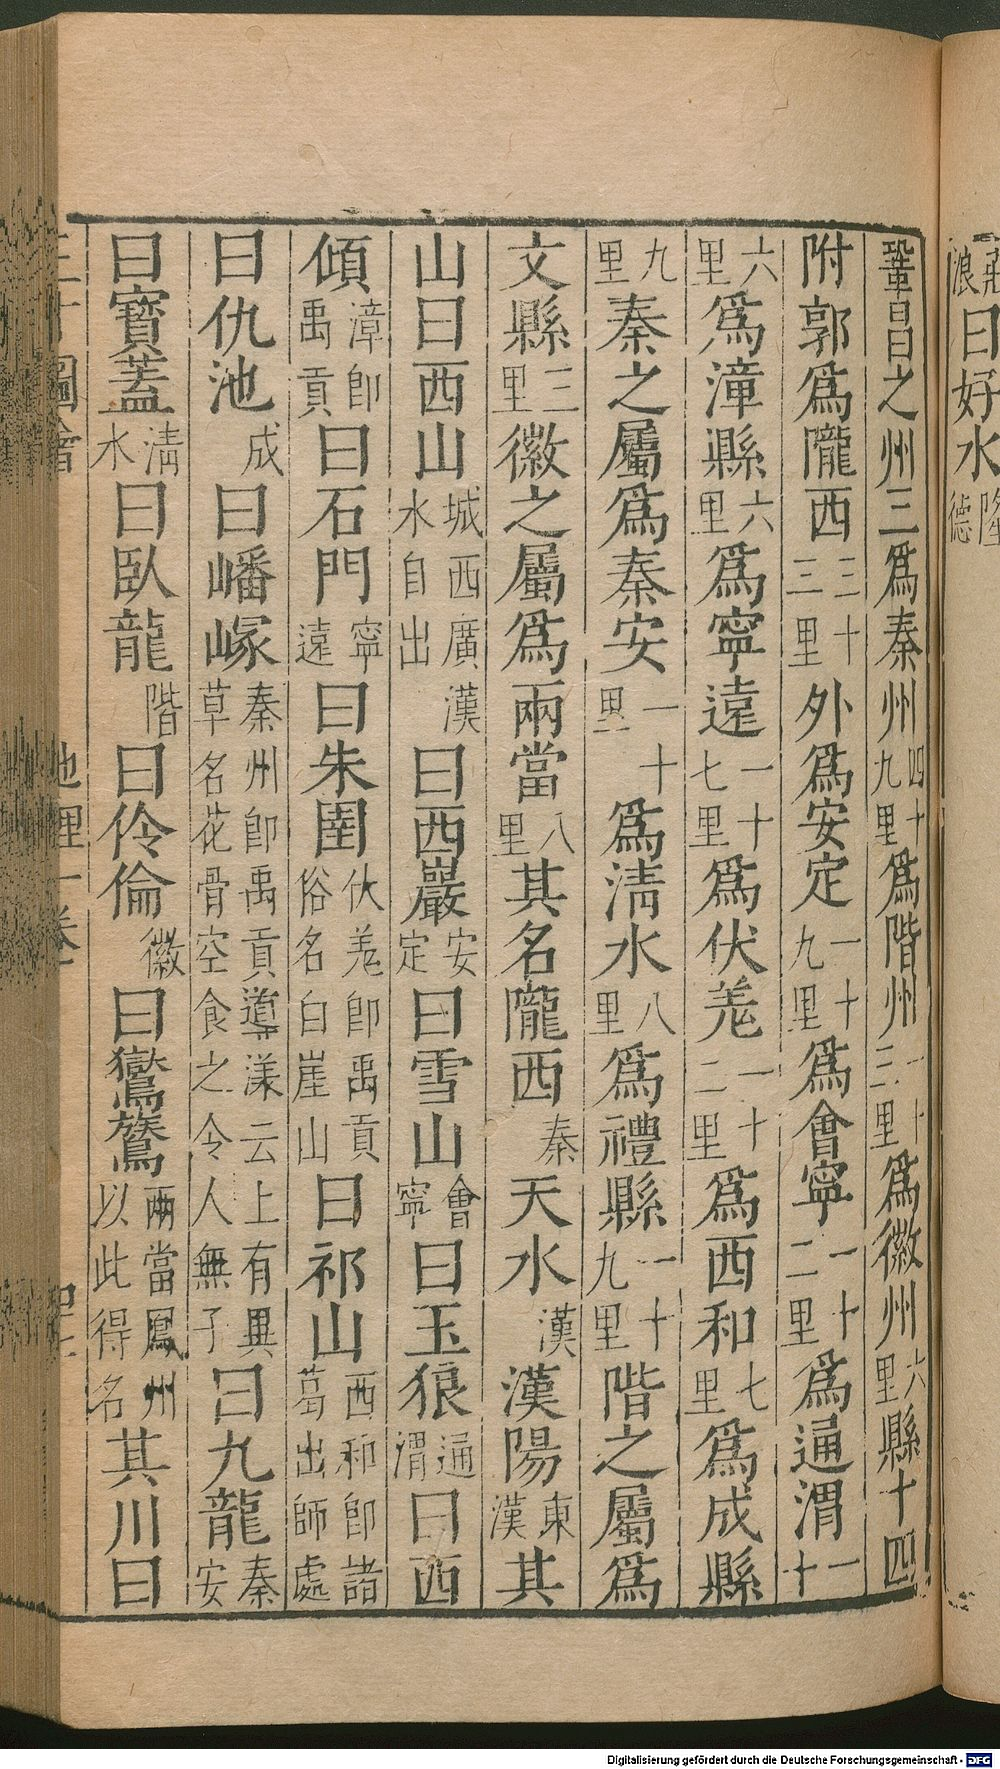 浪曰好水隆德
鞏昌之州三爲秦州四十九里爲階州一十三里爲徽州六里縣十四
附郭爲隴西三十三里外爲安定一十九里爲會寧一十二里爲通渭一十
六里爲漳縣六里爲寧遠一十七里爲伏羌一十二里爲西和七里爲成縣
九里秦之屬爲秦安一十里爲清水八里爲禮縣一十九里階之屬爲
文縣三里徽之屬爲兩當八里其名隴西秦天水漢漢陽東漢其
山曰西山城西廣漢水自出曰西巖安定曰雪山會寧曰玉狼通渭曰西
傾漳卽禹貢曰石門寧遠曰朱圉伏羌卽禹貢俗名白崖山曰祁山西和卽諸葛出師處
曰仇池成曰嶓冢秦州卽禹貢導漾云上有異草名花骨空食之令人無子曰九龍秦安
曰寶蓋清水曰臥龍階曰伶倫徽曰鸑鷟兩當鳳州以此得名其川曰
三才圖會 地理一卷
Digitalisierung gefördert durch die Deutsche Forschungsgemeinschaft - DFG